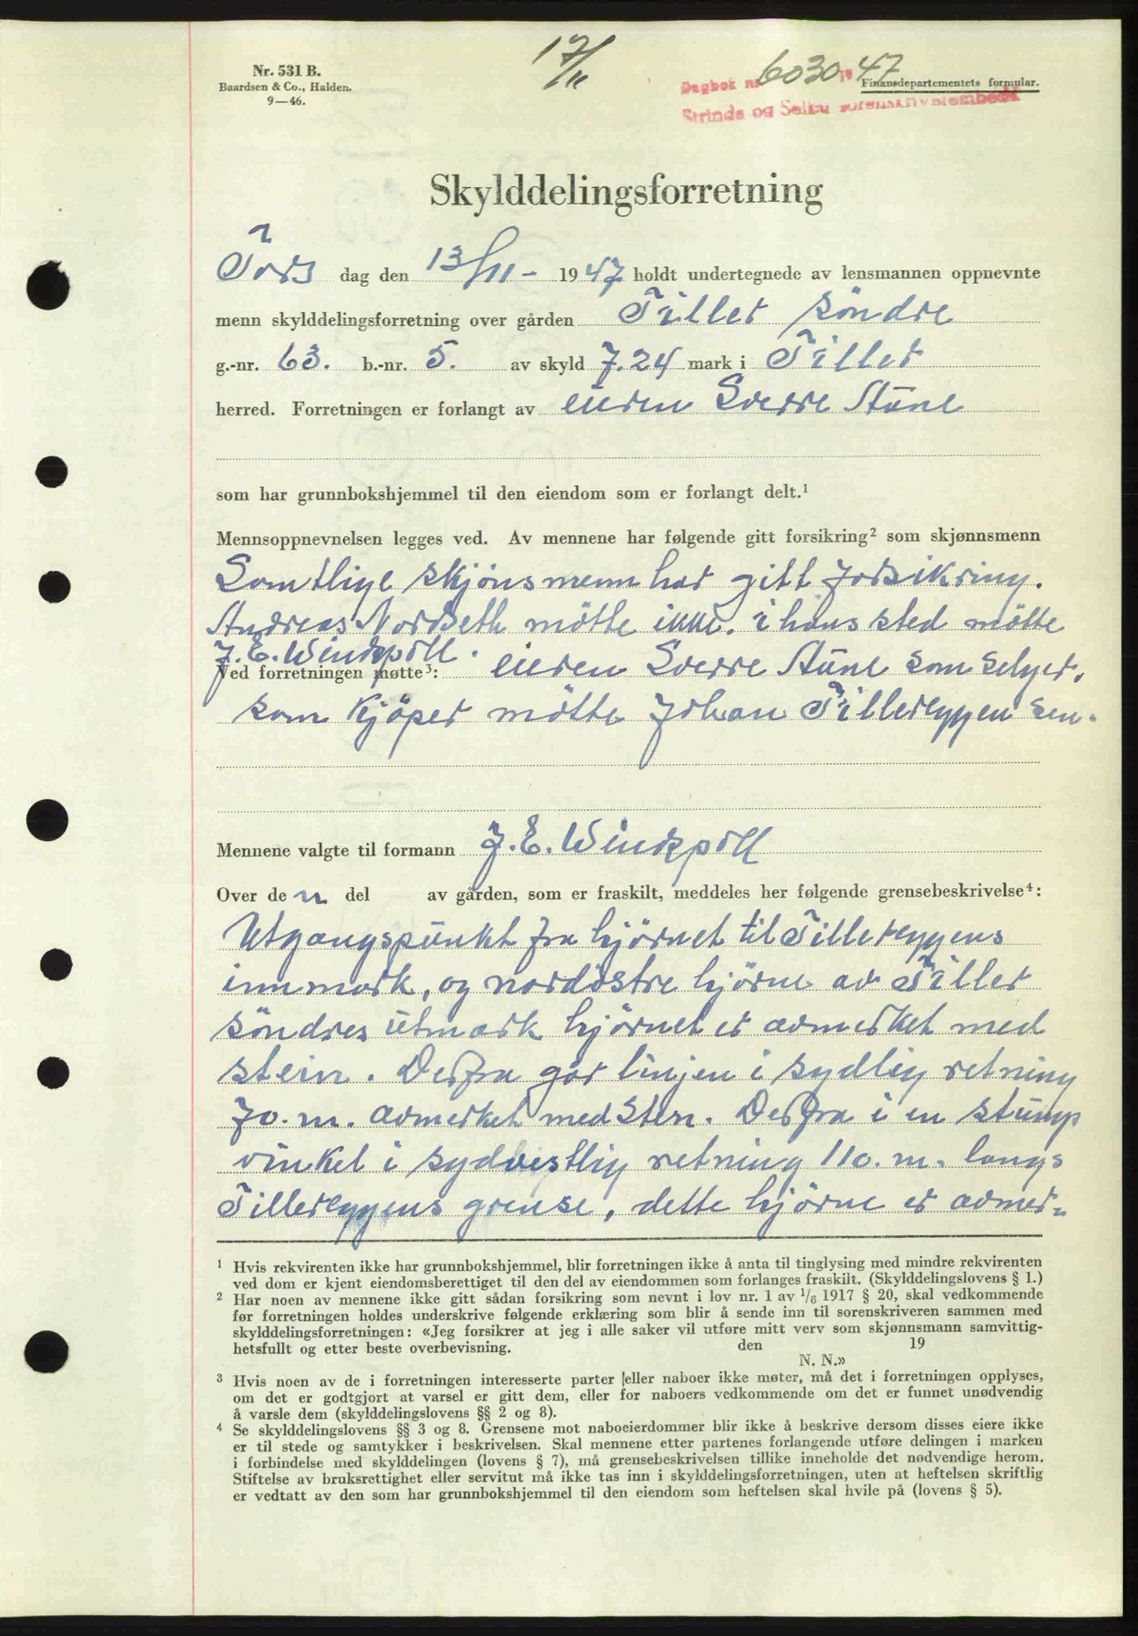 17/11
Nr. 531 B.
Baardsen & Co., Halden.
9—46.
Dagbok nr 6030 19 47
Finansdepartementets formular.
Strinda og Selbu sorenskriverembede
Skylddelingsforretning
Tors dag den 13/11- 1947 holdt undertegnede av lensmannen oppnevnte
menn skylddelingsforretning over gården Tiller söndre
g.-nr. 63. b.-nr. 5. av skyld 7.24 mark i Tiller
herred. Forretningen er forlangt av eieren Sverre Stüne
som har grunnbokshjemmel til den eiendom som er forlangt delt.¹
Mennsoppnevnelsen legges ved. Av mennene har følgende gitt forsikring² som skjønnsmenn
Samtlige skjönsmenn har gitt forsikring.
Andreas Nordseth mötte ikke. i hans sted mötte
J. E. Windspoll.
Ved forretningen møtte³: eieren Sverre Stüne som selger.
som kjöper mötte Johan Tillereggen sen.
Mennene valgte til formann J. E. Windspoll
Over den del av gården, som er fraskilt, meddeles her følgende grensebeskrivelse⁴:
Utgangspunkt fra hjörnet til Tillereggens
innmark, og nordöstre hjörne av Tiller
söndres utmark hjörnet er avmerket med
stein. Derfra går linjen i sydlig retning
70. m. avmerket med sten. Derfra i en stump
vinkel i sydvestlig retning 110. m. langs
Tillereggens grense, dette hjörne er avmer=
¹ Hvis rekvirenten ikke har grunnbokshjemmel, blir forretningen ikke å anta til tinglysing med mindre rekvirenten
ved dom er kjent eiendomsberettiget til den del av eiendommen som forlanges fraskilt. (Skylddelingslovens § 1.)
² Har noen av mennene ikke gitt sådan forsikring som nevnt i lov nr. 1 av 1/6 1917 § 20, skal vedkommende
før forretningen holdes underskrive følgende erklæring som blir å sende inn til sorenskriveren sammen med
skylddelingsforretningen: «Jeg forsikrer at jeg i alle saker vil utføre mitt verv som skjønnsmann samvittig-
hetsfullt og etter beste overbevisning. den 19
N. N.»
³ Hvis noen av de i forretningen interesserte parter eller naboer ikke møter, må det i forretningen opplyses,
om det er godtgjort at varsel er gitt dem, eller for naboers vedkommende om det er funnet unødvendig
å varsle dem (skylddelingslovens §§ 2 og 8).
⁴ Se skylddelingslovens §§ 3 og 8. Grensene mot naboeierdommer blir ikke å beskrive dersom disses eiere ikke
er til stede og samtykker i beskrivelsen. Skal mennene etter partenes forlangende utføre delingen i marken
i forbindelse med skylddelingen (lovens § 7), må grensebeskrivelsen tillike inneholde det nødvendige herom.
Stiftelse av bruksrettighet eller servitut må ikke tas inn i skylddelingsforretningen, uten at heftelsen skriftlig
er vedtatt av den som har grunnbokshjemmel til den eiendom som heftelsen skal hvile på (lovens § 5).